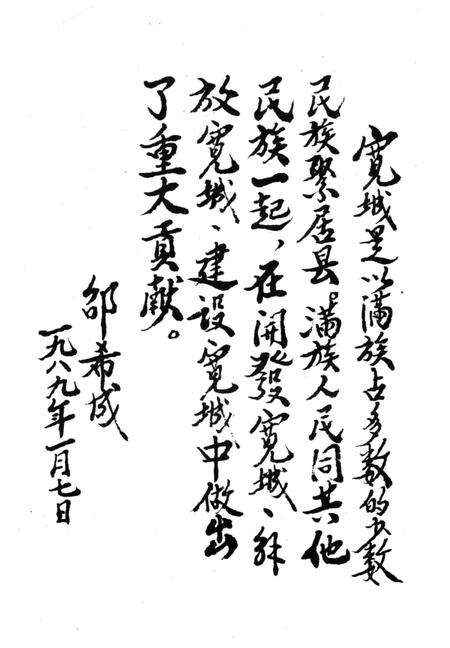 寬城是以滿族占多数的少数
民族聚居县。滿族人民同其他
民族一起，在开發寬城、解
放寬城、建设寬城中做出
了重大贡献。
邵希成
一九八九年一月七日